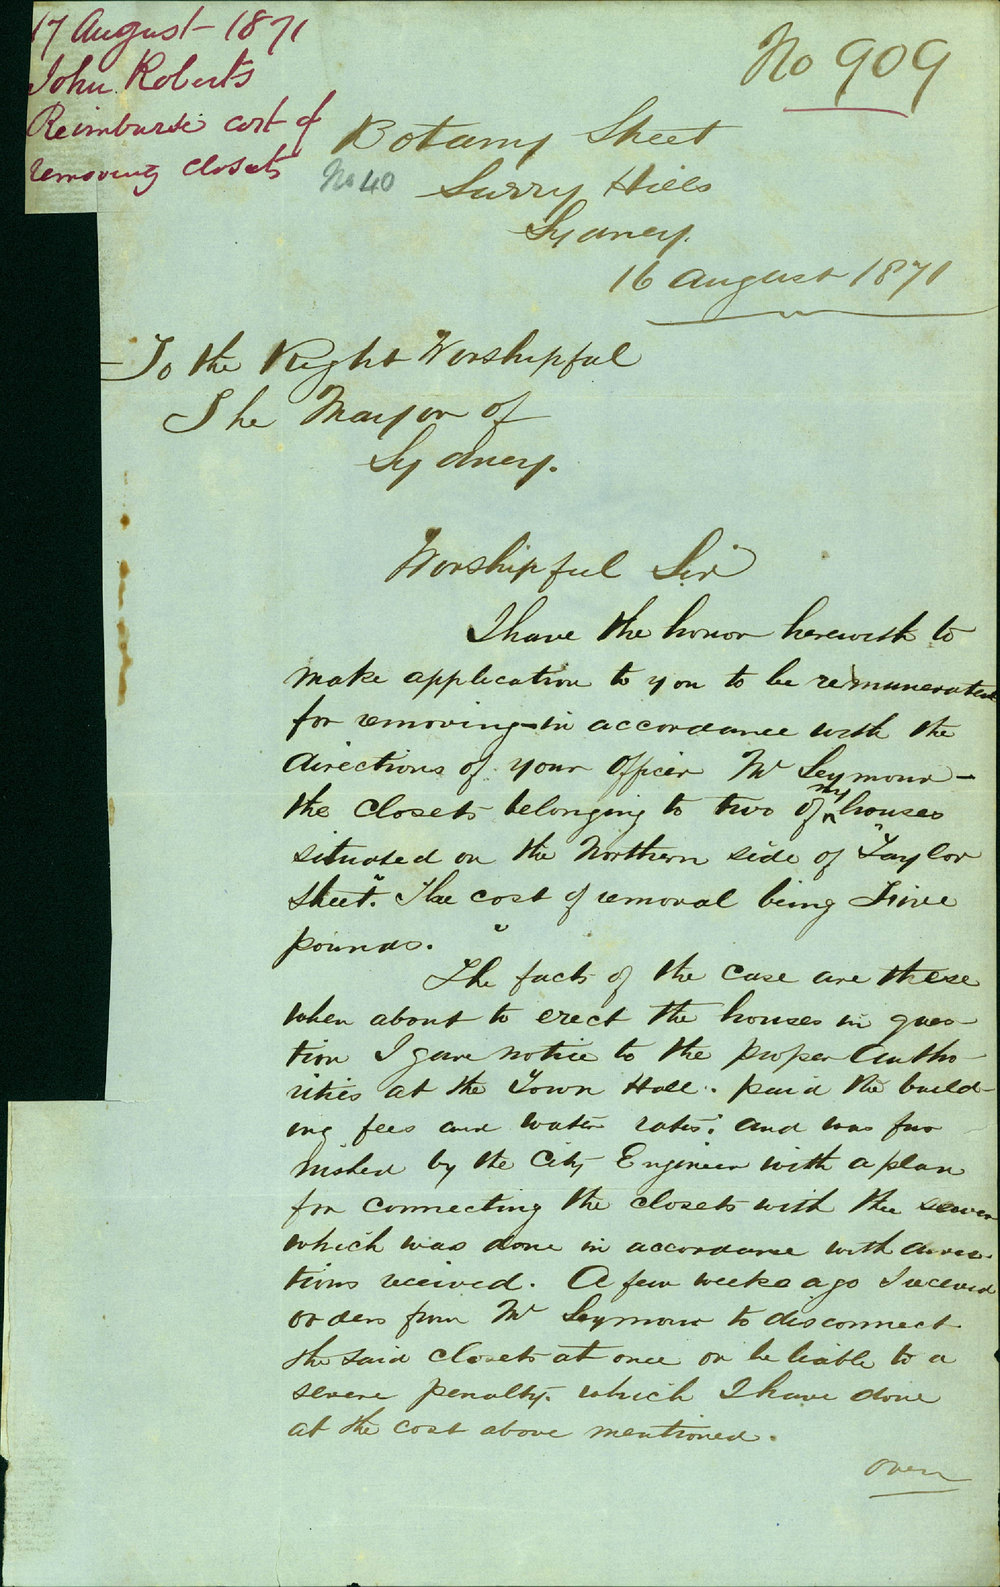 17 August - 1871
John Roberts
Reimburse cost of
removing closets
No 909
Botany Street
No 40
Surry Hills
Sydney.
16 August 1871
To the Right Worshipful
The Mayor of
Sydney.
Worshipful Sir
I have the honor herewith to
make application to you to be remunerated
for removing - in accordance with the
directions of your Officer Mr Seymour -
the closets belonging to two of my houses
situated on the Northern side of "Taylor
Street". The cost of removal being Five
pounds.
The facts of the case are these
when about to erect the houses in ques-
tion I gave notice to the proper autho-
rities at the Town Hall: paid the build-
ing fees and water rates: and was fur
nished by the City Engineer with a plan
for connecting the closets with the sewer
which was done in accordance with direc-
tions received. A few weeks ago I received
orders from Mr Seymour to disconnect
the said closets at once or be liable to a
severe penalty. which I have done
at the cost above mentioned.
over